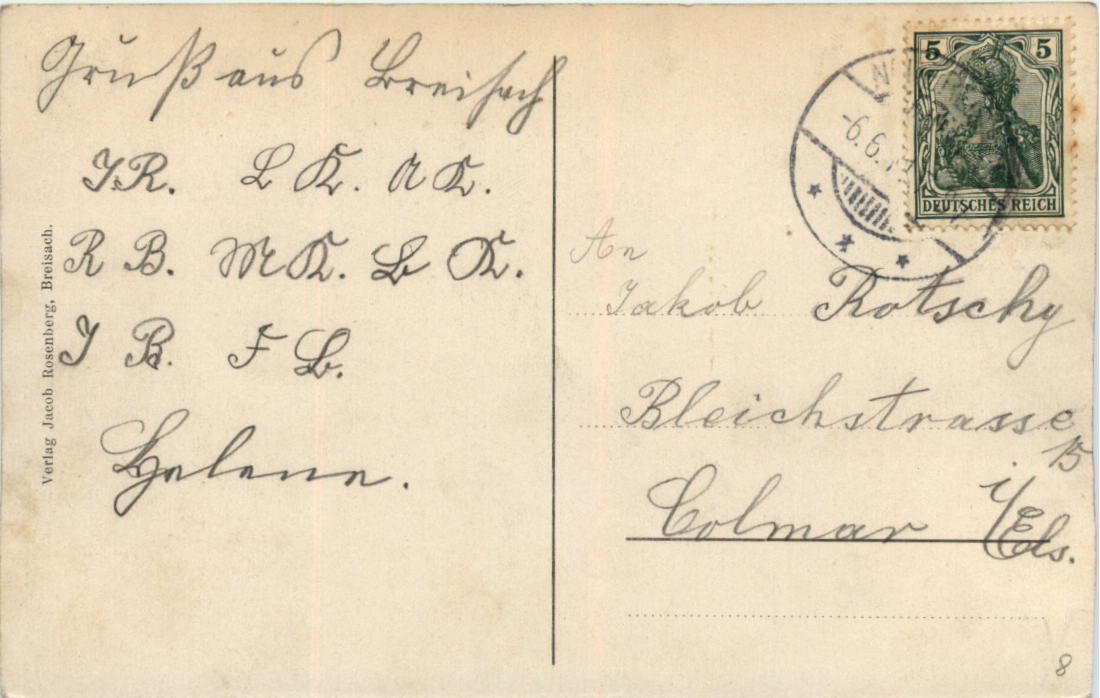 Gruß aus Breisach
J.R. L K. A K.
R B. M K. L K.
J B. F L.
Helene.
Verlag Jacob Rosenberg, Breisach.
5 5
DEUTSCHES REICH
-6.6.
An
Jakob Rotschy
Bleichstrasse
15
Colmar i/Els.
8